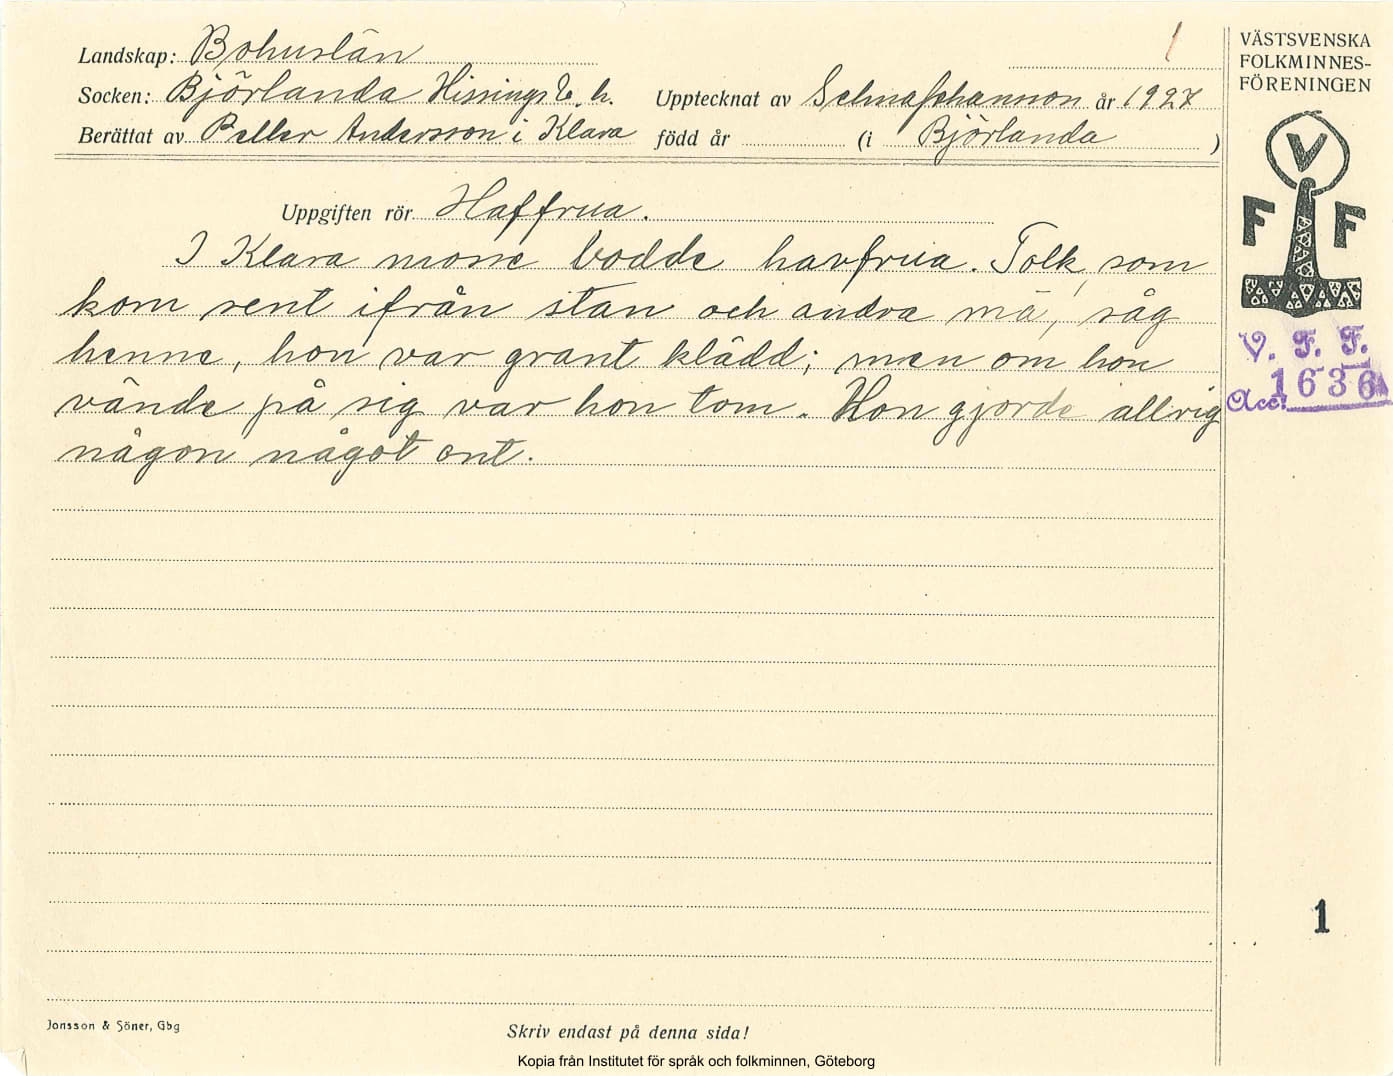 Landskap: Bohuslän
1
Socken: Björlanda Hisings Ö. h. Upptecknat av Selma Johansson år 1927
Berättat av Peller Andersson i Klara född år (i Björlanda )
Uppgiften rör Haffrua.
I Klara mosse bodde havfrua. Folk, som
kom sent ifrån stan och andra mä, såg
henne, hon var grant klädd; men om hon
vände på sig var hon tom. Hon gjorde allrig
någon något ont.
VÄSTSVENSKA
FOLKMINNES-
FÖRENINGEN
V
F F
V. F. F.
Acc: 1636
1
Jonsson & Söner, Gbg
Skriv endast på denna sida!
Kopia från Institutet för språk och folkminnen, Göteborg